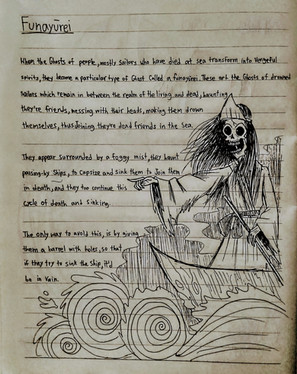 Funayūrei
When the Ghosts of people, mostly Sailors who have died at sea transform into Vengeful
spirits, they become a particular type of Ghost called a funayūrei. These are the Ghosts of drowned
Sailors which remain in between the realm of the living and dead, haunting
they're friends, messing with their heads, making them drown
themselves, thus driving they're dead friends in the sea.
They appear surrounded by a foggy mist, they haunt
passing-by Ships, to Capsize and sink them to Join them
in death, and they too continue this
cycle of death and sinking.
The only way to avoid this, is by giving
them a barrel with holes, so that
if they try to sink the ship, it'd
be in Vain.